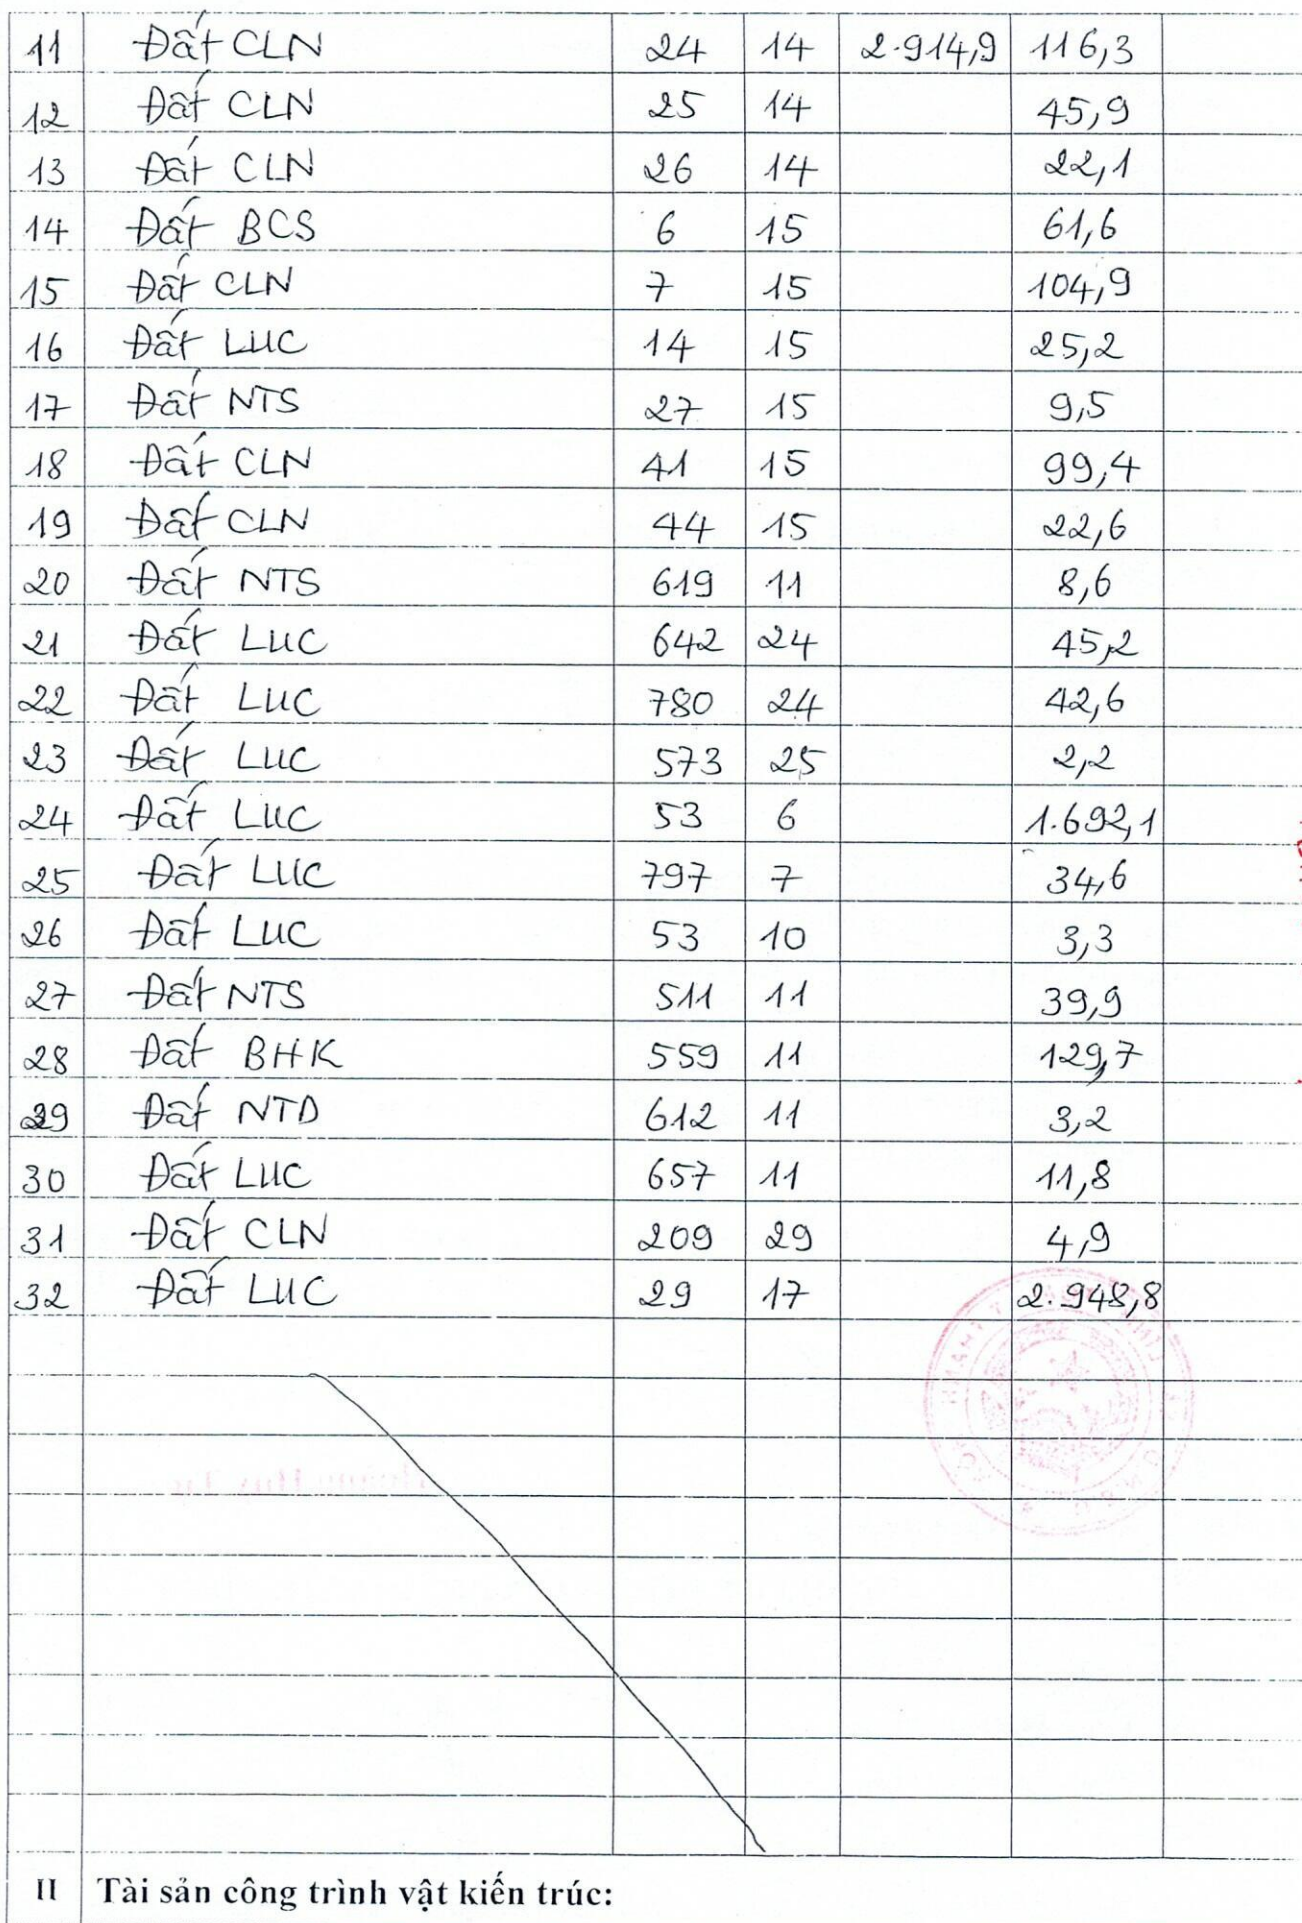 11 Đất CLN 24 14 2.914,9 116,3
12 Đất CLN 25 14 45,9
13 Đất CLN 26 14 22,1
14 Đất BCS 6 15 61,6
15 Đất CLN 7 15 104,9
16 Đất LUC 14 15 25,2
17 Đất NTS 27 15 9,5
18 Đất CLN 41 15 99,4
19 Đất CLN 44 15 22,6
20 Đất NTS 619 11 8,6
21 Đất LUC 642 24 45,2
22 Đất LUC 780 24 42,6
23 Đất LUC 573 25 2,2
24 Đất LUC 53 6 1.692,1
25 Đất LUC 797 7 34,6
26 Đất LUC 53 10 3,3
27 Đất NTS 511 11 39,9
28 Đất BHK 559 11 129,7
29 Đất NTD 612 11 3,2
30 Đất LUC 657 11 11,8
31 Đất CLN 209 29 4,9
32 Đất LUC 29 17 2.948,8
II Tài sản công trình vật kiến trúc: